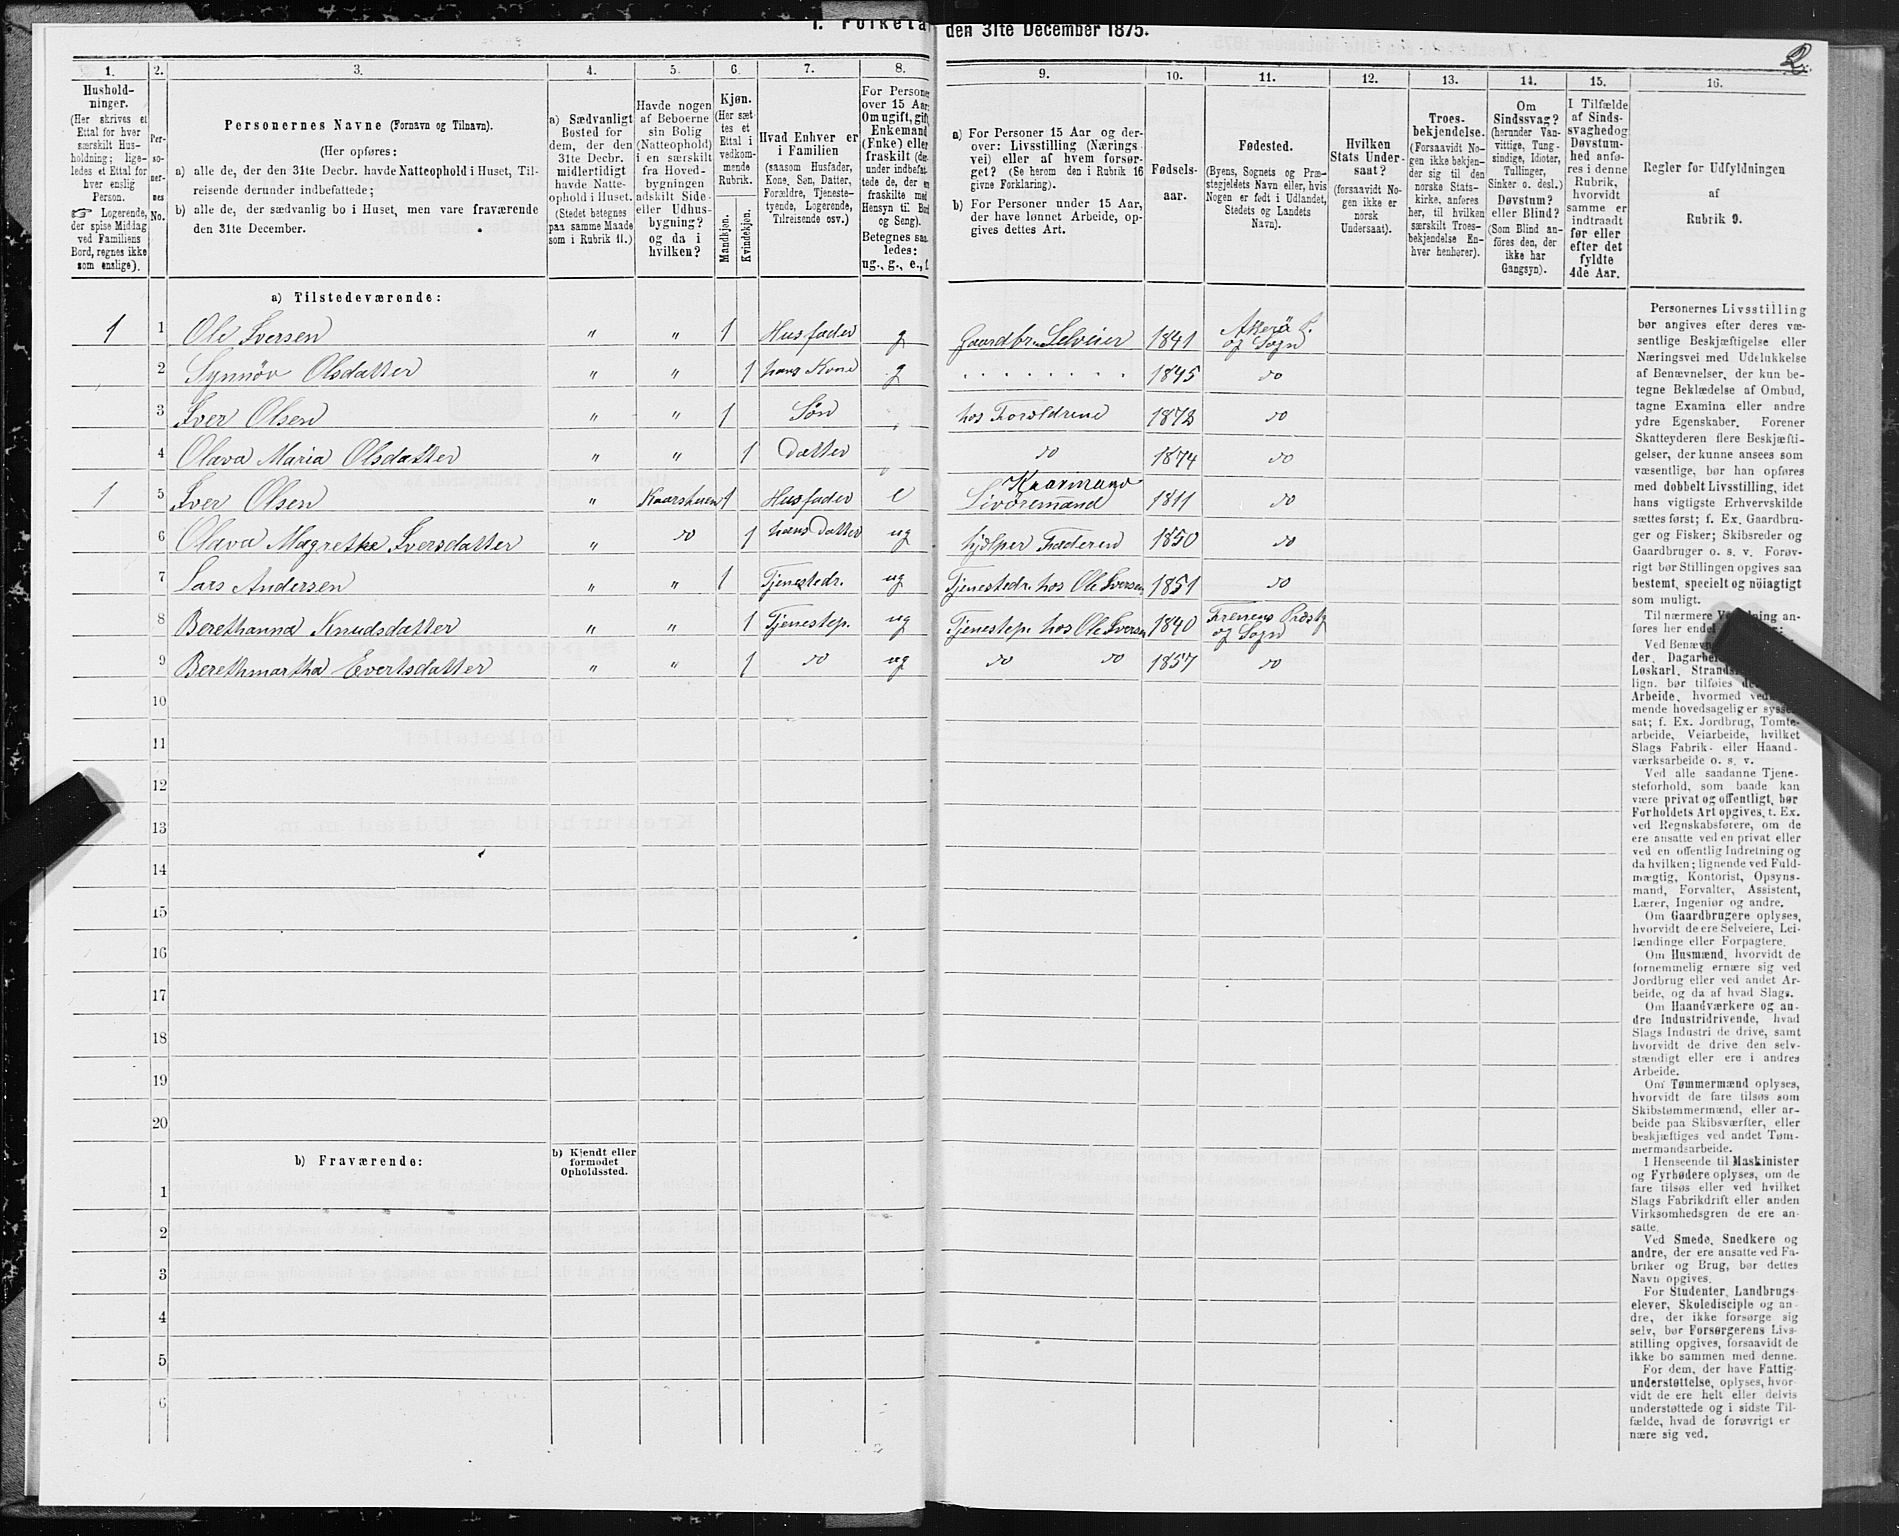 1. Folketæ den 31te December 1875.
2.
1. 2. 3. 4. 5. 6. 7. 8. 9. 10. 11. 12. 13. 14. 15. 16.
Hushold-
ninger.
(Her skrives et
Ettal for hver
særskilt Hus-
holdning; lige-
ledes et Ettal for
hver enslig
Person.
☞ Logerende,
der spise Middag
ved Familiens
Bord, regnes ikke
som enslige).
Per-
so-
ner-
nes
No.
Personernes Navne (Fornavn og Tilnavn).
(Her opføres:
a) alle de, der den 31te Decbr. havde Natteophold i Huset, Til-
reisende derunder indbefattede;
b) alle de, der sædvanlig bo i Huset, men vare fraværende
den 31te December.
a) Sædvanligt
Bosted for
dem, der den
31te Decbr.
midlertidigt
havde Natte-
ophold i Huset.
(Stedet betegnes
paa samme Maade
som i Rubrik 11.)
Havde nogen
af Beboerne
sin Bolig
(Natteophold)
i en særskilt
fra Hoved-
bygningen
adskilt Side-
eller Udhus-
bygning?
og da i
hvilken?
Kjøn.
(Her sæt-
tes et
Ettal i
vedkom-
mende
Rubrik.
Mandkjøn.
Kvindekjøn.
Hvad Enhver er
i Familien
(saasom Husfader,
Kone, Søn, Datter,
Forældre, Tjeneste-
tyende, Logerende,
Tilreisende osv.)
For Persone
over 15 Aar
Om ugift, gif
Enkemand
(Enke) eller
fraskilt (de
under indbefat
tede de, der e
fraskilte med
Hensyn til Bord
og Seng).
Betegnes saa
ledes:
ug., g., e., f
a) For Personer 15 Aar og der-
over: Livsstilling (Nærings
vei) eller af hvem forsør-
get? (Se herom den i Rubrik 16
givne Forklaring).
b) For Personer under 15 Aar,
der have lønnet Arbeide, op-
gives dettes Art.
Fødsels-
aar.
Fødested.
(Byens, Sognets og Præ-
stegjeldets Navn eller, hvis
Nogen er født i Udlandet,
Stedets og Landets
Navn).
Hvilken
Stats Under-
saat?
(forsaavidt No-
gen ikke er
norsk
Undersaat).
Troes-
bekjendelse.
(Forsaavidt No-
gen ikke bekjen-
der sig til den
norske Stats-
kirke, anføres
her, til hvilken
særskilt Troes-
bekjendelse En-
hver henhører).
Om
Sindssvag?
(herunder Van-
vittige, Tung-
sindige, Idioter,
Tullinger,
Sinker o. desl.)
Døvstum?
eller Blind?
(Som Blind an-
føres den, der
ikke har
Gangsyn).
I Tilfælde
af Sinds-
svaghed og
Døvstum-
hed anfø-
res i denne
Rubrik,
hvorvidt
samme er
indtraadt
før eller
efter det
fyldte
4de Aar.
Regler for Udfyldningen
af
Rubrik 9.
a) Tilstedeværende:
1 1 Ole Iversen " " 1 Husfader g Gaardbr. Selveier 1841 Akerö P. og Sogn
2 Synnöv Olsdatter " " 1 hans Kone g 1845 do
3 Iver Olsen " " 1 Søn hos Forældrene 1872 do
4 Olava Maria Olsdatter " " 1 Datter do 1874 do
1 5 Iver Olsen " Kaarstuen 1 Husfader e Kaarmand Livöremand 1811 do
6 Olava Magretha Iversdatter " do 1 hans Datter ug hjelper Faderen 1850 do
7 Lars Andersen " " 1 Tjenestedr. ug Tjenestedr. hos Ole Iversen 1851 do
8 Berethanna Knudsdatter " " 1 Tjenestep. ug Tjenestep. hos Ole Iversen 1840 Frenens Prdstg og Sogn
9 Berethmartha Evertsdatter " " 1 do ug do do 1857 do
10
11
12
13
14
15
16
17
18
19
20
b) Fraværende:
b) Kjendt eller
formodet
Opholdssted.
1
2
3
4
5
6
Personernes Livsstilling
bør angives efter deres væ-
sentlige Beskjæftigelse eller
Næringsvei med Udelukkelse
af Benævnelser, der kun be-
tegne Beklædelse af Ombud,
tagne Examina eller andre
ydre Egenskaber. Forener
Skatteyderen flere Beskjæfti-
gelser, der kunne ansees som
væsentlige, bør han opføres
med dobbelt Livsstilling, idet
hans vigtigste Erhvervskilde
sættes først; f. Ex. Gaardbru-
ger og Fisker; Skibsreder og
Gaardbruger o. s. v. Forøv-
rigt bør Stillingen opgives saa
bestemt, specielt og nöiagtigt
som muligt.
Til nærmere Ve ning an-
føres her ende
Ved Benævn
der, Dagarbe
Løskarl, Strands
lign. bør tilføies de
Arbeide, hvormed ved
mende hovedsagelig er syssel-
sat; f. Ex. Jordbrug, Tomte-
arbeide, Veiarbeide, hvilket
Slags Fabrik- eller Haand-
værksarbeide o. s. v.
Ved alle saadanne Tjene-
steforhold, som baade kan
være privat og offentligt, bør
Forholdets Art opgives, f. Ex.
ved Regnskabsførere, om de
ere ansatte ved en privat eller
ved en offentlig Indretning og
da hvilken; lignende ved Fuld-
mægtig, Kontorist, Opsyns-
mand, Forvalter, Assistent,
Lærer, Ingeniør og andre.
Om Gaardbrugere oplyses,
hvorvidt de ere Selveiere, Lei-
lændinge eller Forpagtere.
Om Husmænd, hvorvidt de
fornemmelig ernære sig ved
Jordbrug eller ved andet Ar-
beide, og da af hvad Slags.
Om Haandværkere og an-
dre Industridrivende, hvad
Slags Industri de drive, samt
hvorvidt de drive den selv-
stændigt eller ere i andres
Arbeide.
Om Tømmermænd oplyses,
hvorvidt de fare tilsøs som
Skibstømmermænd, eller ar-
beide paa Skibsværfter, eller
beskjæftiges ved andet Tøm-
mermandsarbeide.
I Henseende til Maskinister
og Fyrbødere oplyses, om de
fare tilsøs eller ved hvilket
Slags Fabrikdrift eller anden
Virksomhedsgren de ere an-
satte.
Ved Smede, Snedkere og
andre, der ere ansatte ved Fa-
briker og Brug, bør dettes
Navn opgives.
For Studenter, Landbrugs-
elever, Skoledisciple og an-
dre, der ikke forsørge sig
selv, bør Forsørgerens Livs-
stilling opgives, forsaavidt de
ikke bo sammen med denne.
For dem, der have Fattig-
understøttelse, oplyses, hvor-
vidt de ere helt eller delvis
understøttede og i sidste Til-
fælde, hvad de forøvrigt er
nære sig ved.